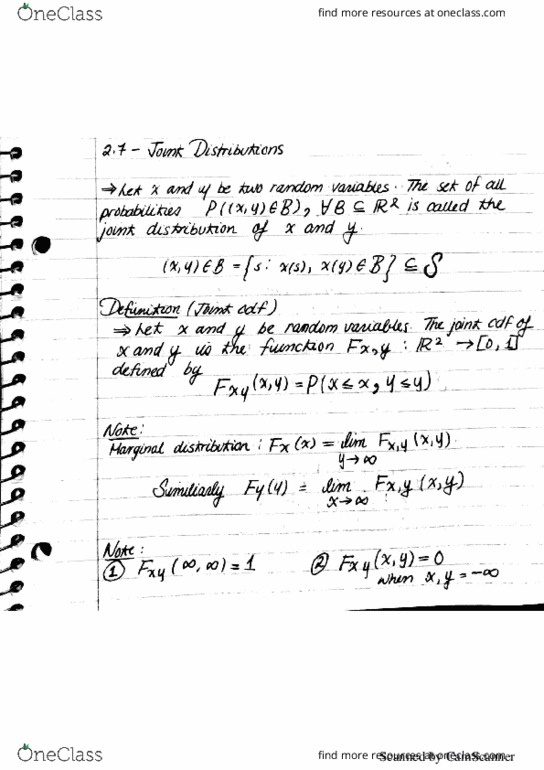 OneClass
find more resources at oneclass.com
2.7 - Joint Distributions
⇒ Let x and y be two random variables. The set of all
probabilities P((x,y)∈B), ∀B ⊆ ℝ² is called the
joint distribution of x and y.
(x,y)∈B = {s: x(s), x(y)∈B} ⊆ S
Definition (Joint cdf)
⇒ Let x and y be random variables. The joint cdf of
x and y is the function Fx,y : ℝ² → [0,1]
defined by
Fxy(x,y) = P(x ≤ x, y ≤ y)
Note:
Marginal distribution: Fx(x) = lim Fx,y(x,y)
y→∞
Similiarly Fy(y) = lim Fx,y(x,y)
x→∞
Note:
① Fxy(∞,∞) = 1 ② Fxy(x,y) = 0
when x,y = -∞
OneClass
find more resources at oneclass.com
Scanned by CamScanner